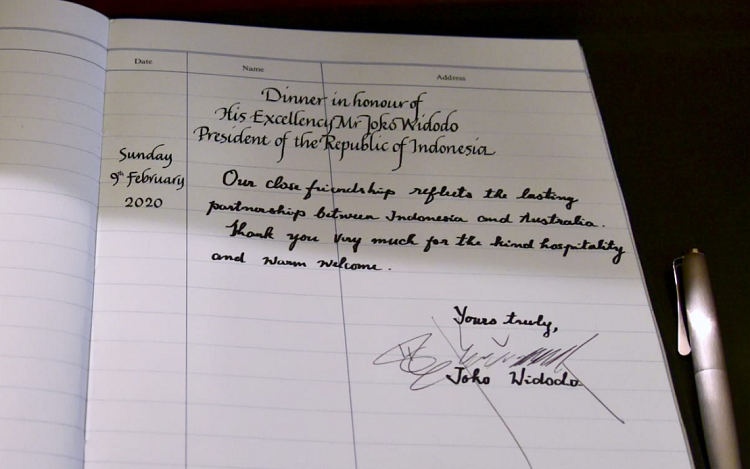 Date Name Address
Dinner in honour of
His Excellency Mr Joko Widodo
President of the Republic of Indonesia
Sunday
9th February
2020
Our close friendship reflects the lasting
partnership between Indonesia and Australia.
Thank you very much for the kind hospitality
and warm welcome.
Yours truly,
Joko Widodo